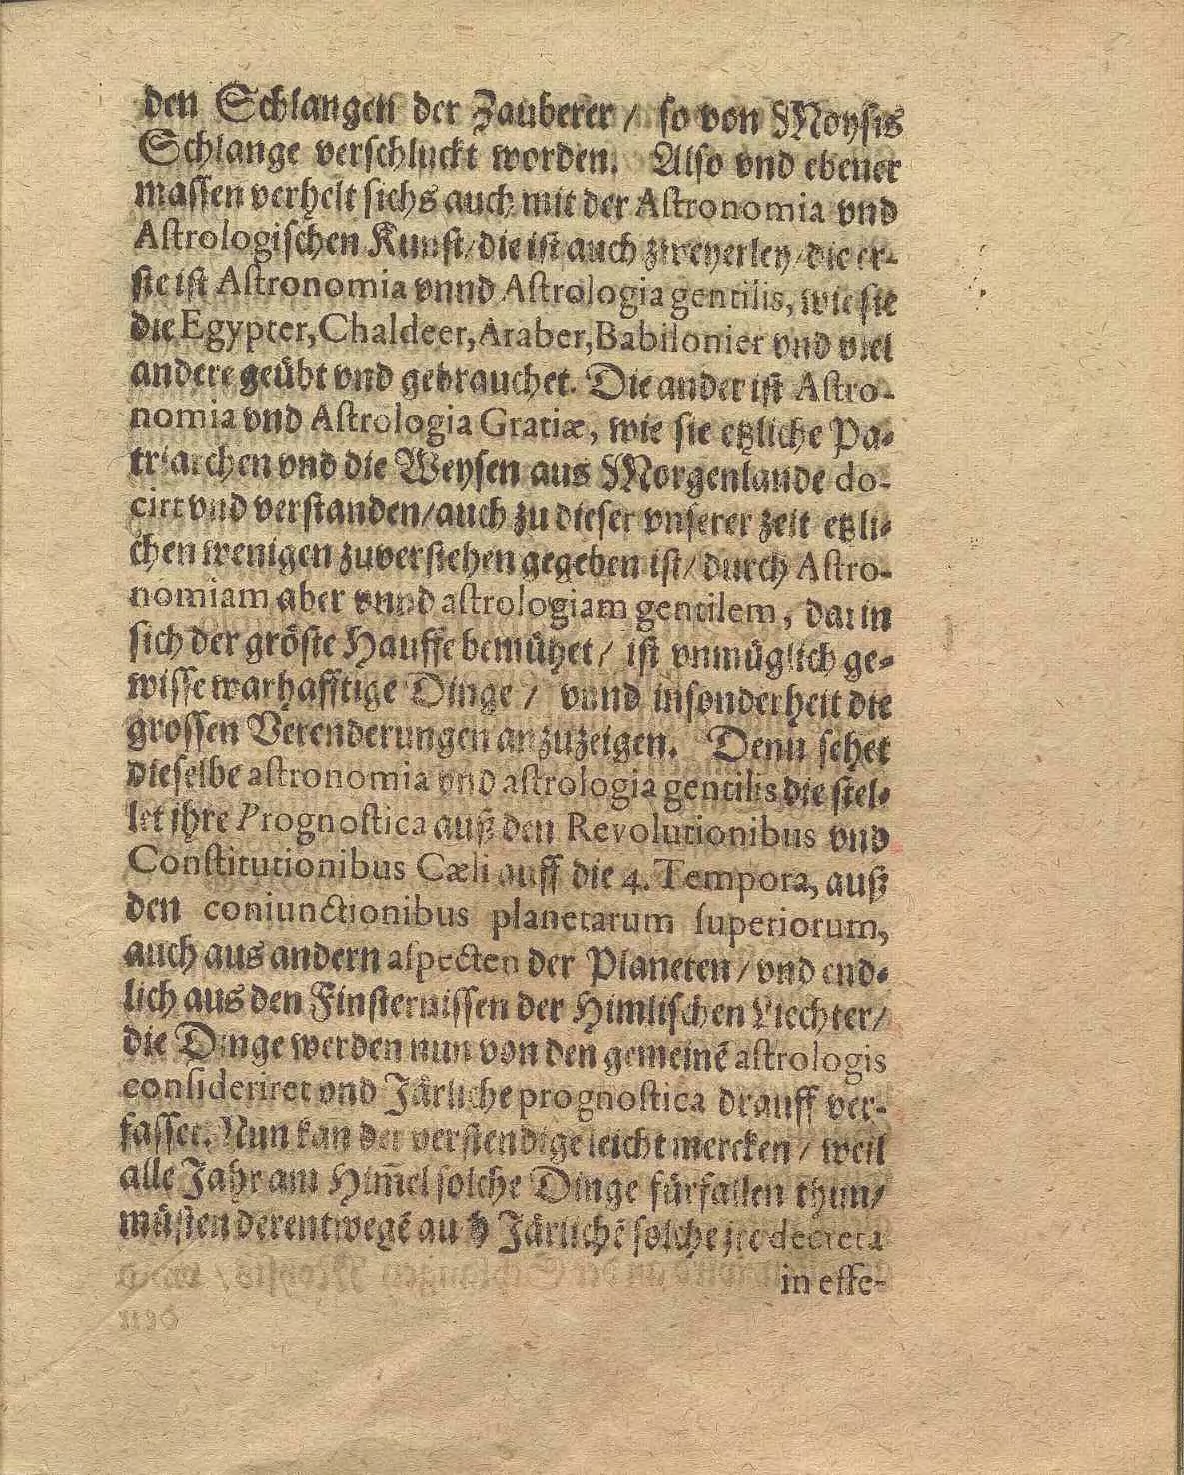 den Schlangen der Zauberer / so von Moysis
Schlange verschluckt worden. Also vnd ebener
massen verhelt sichs auch mit der Astronomia vnd
Astrologischen Kunst/die ist auch zweyerley/die er-
ste ist Astronomia vnnd Astrologia gentilis, wie sie
die Egypter,Chaldeer,Araber,Babilonier vnd viel
andere geübt vnd gebrauchet. Die ander ist Astro-
nomia vnd Astrologia Gratiæ, wie sie etzliche Pa-
triarchen vnd die Weysen aus Morgenlande do-
cirt vnd verstanden/auch zu dieser vnserer zeit etzli-
chen wenigen zuverstehen gegeben ist/ durch Astro-
nomiam aber vnnd astrologiam gentilem, darin
sich der gröste Hauffe bemühet/ ist vnmüglich ge-
wisse warhafftige Dinge / vnnd insonderheit die
grossen Verenderungen anzuzeigen. Denn sehet
dieselbe astronomia vnd astrologia gentilis die stel-
let jhre Prognostica auß den Revolutionibus vnd
Constitutionibus Cæli auff die 4. Tempora, auß
den coniunctionibus planetarum superiorum,
auch aus andern aspecten der Planeten/vnd end-
lich aus den Finsternissen der Himlischen Liechter/
die Dinge werden nun von den gemeinē astrologis
consideriret vnd Järliche prognostica drauff ver-
fasset. Nun kan der verstendige leicht mercken/ weil
alle Jahr am Him̄el solche Dinge fürfallen thun/
müsten derentwegē auch Järlichē solche jre decreta
in effe-